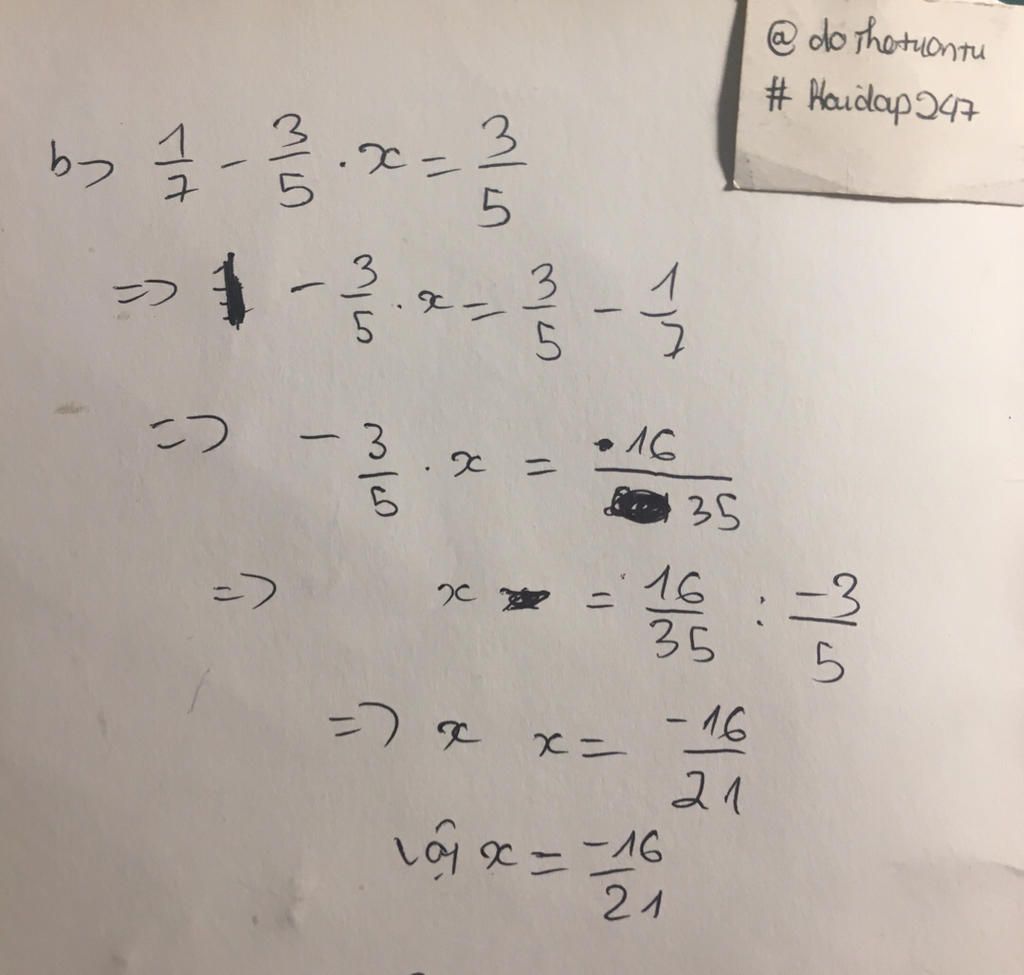 @ dothotuontu
# Hoidap247
b> 1/7 - 3/5 . x = 3/5
=> - 3/5 . x = 3/5 - 1/7
=> - 3/5 . x = 16/35
=> x = 16/35 : -3/5
=> x x = -16/21
Vậy x = -16/21